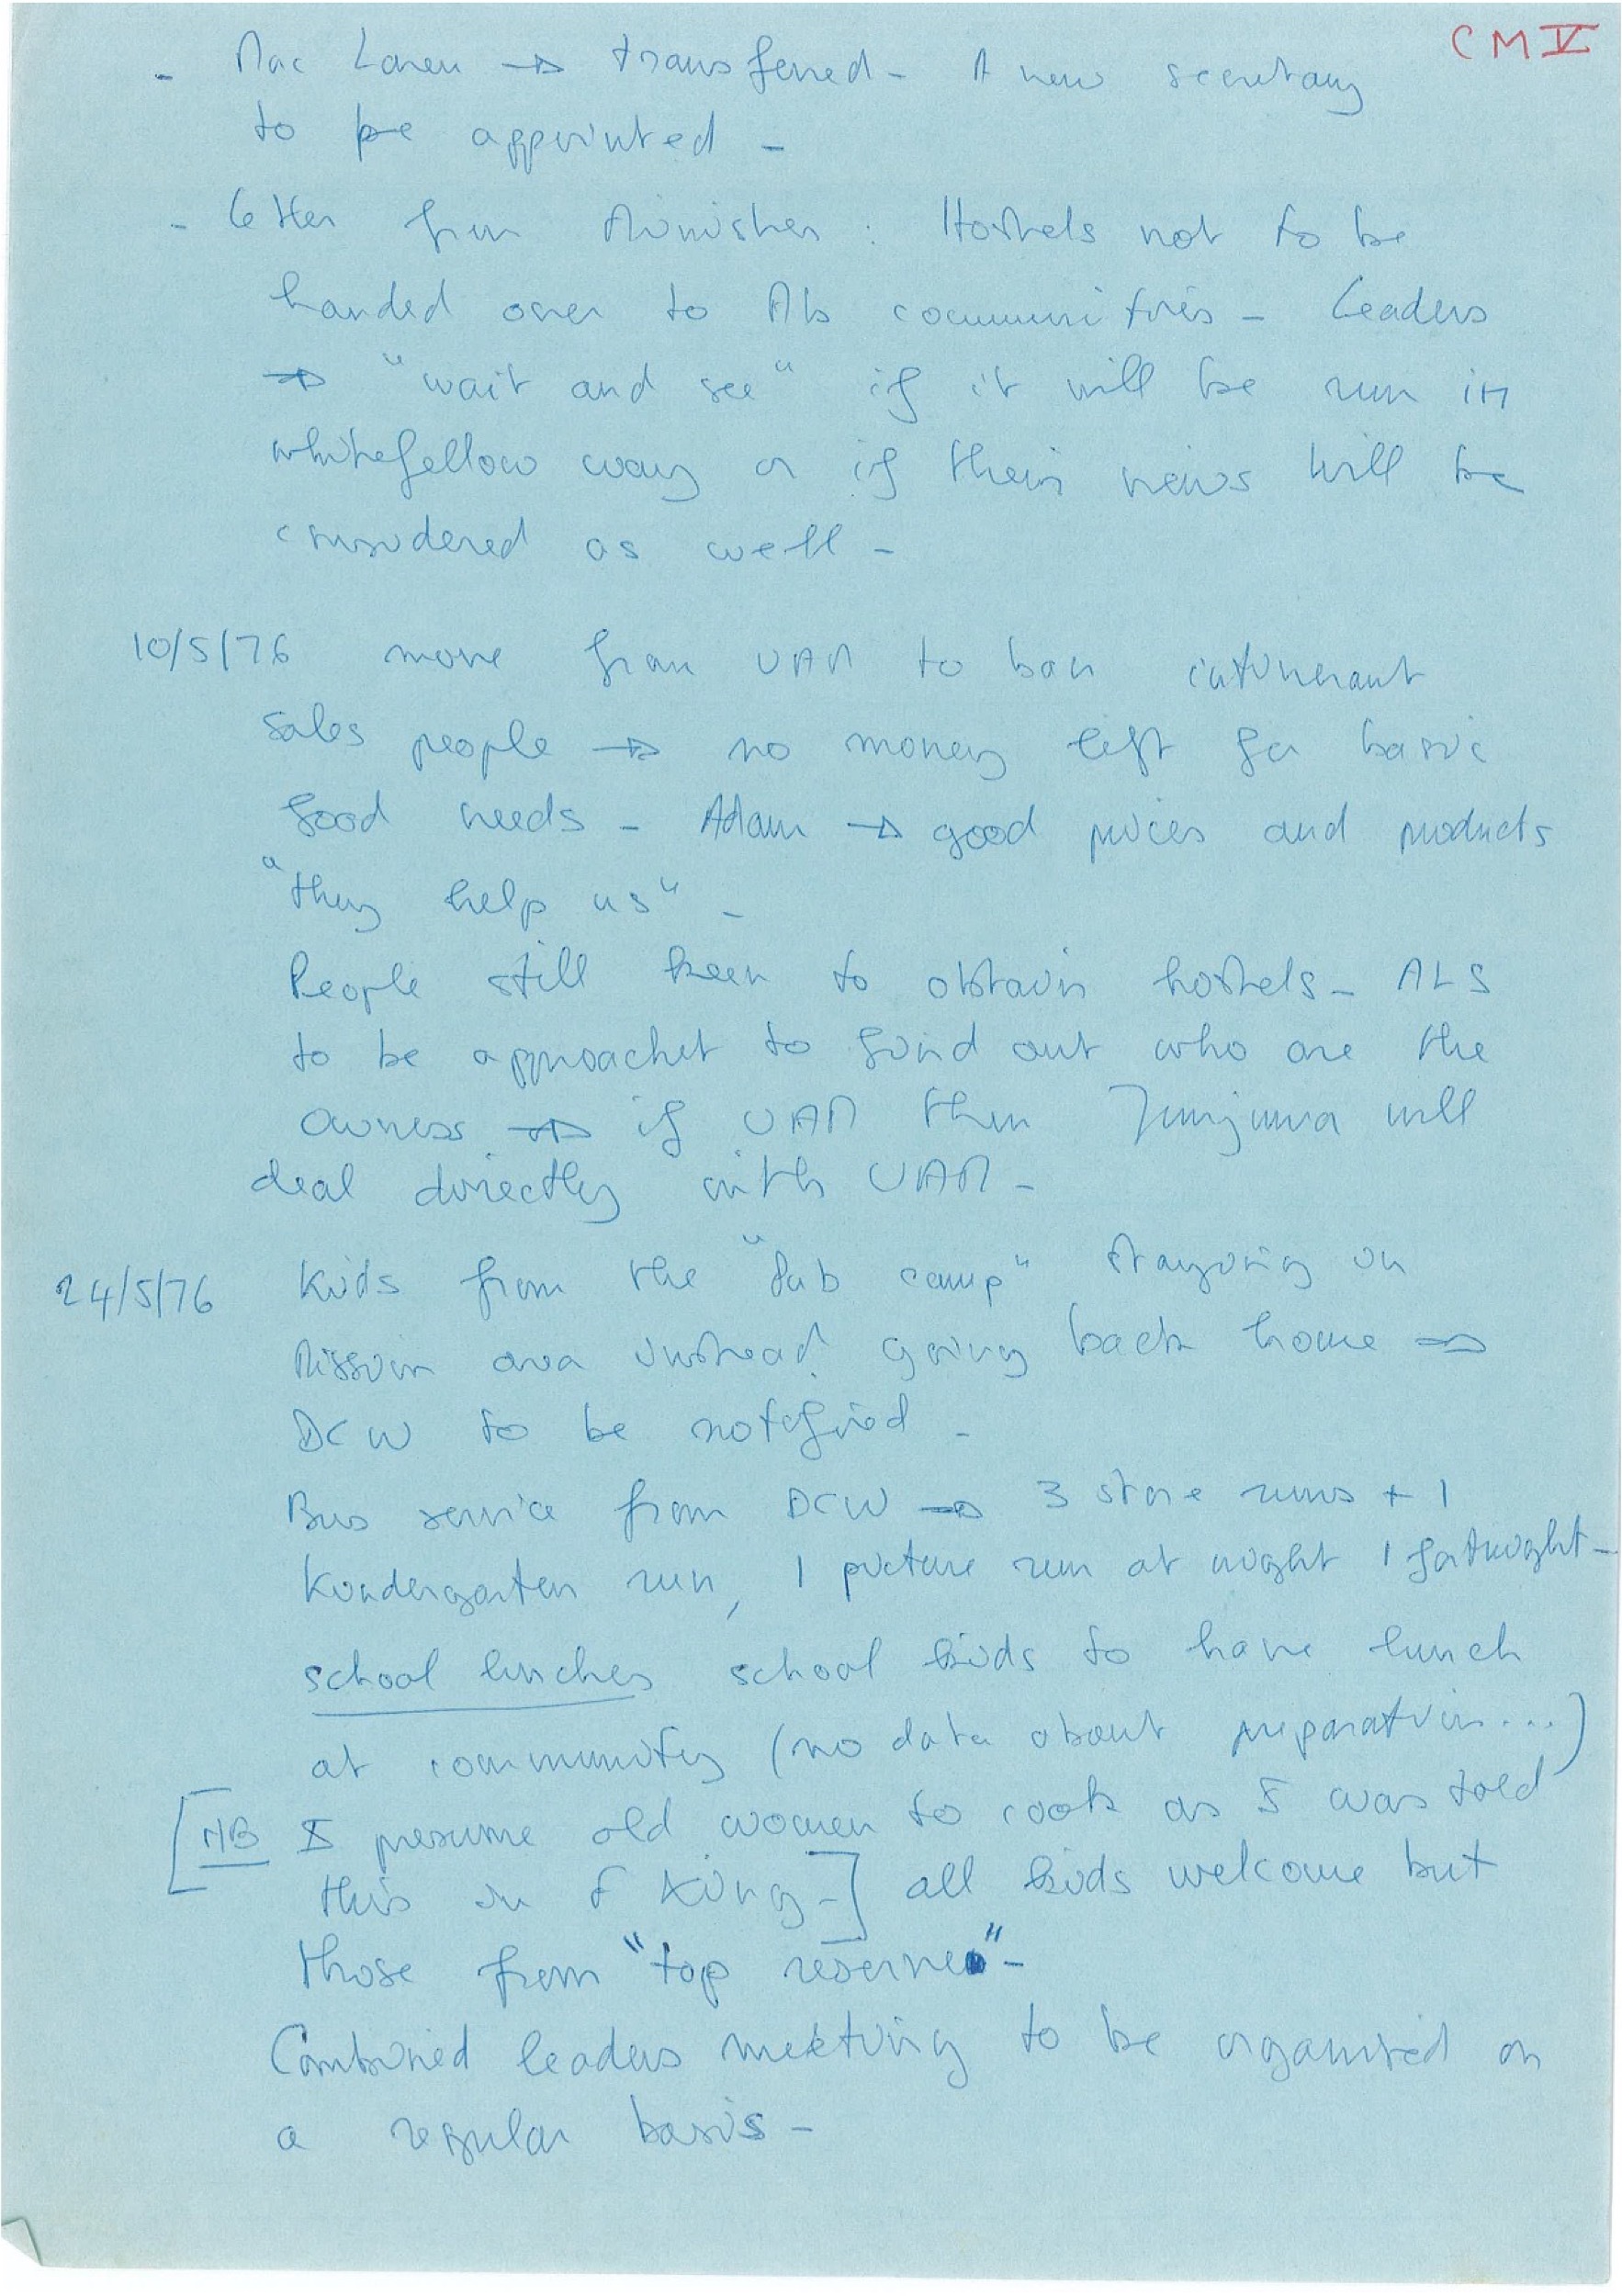 CM V
- Mac Laren → transferred - A new secretary
to be appointed -
- letter from Minister : Hostels not to be
handed over to Ab communities - Leaders
→ "wait and see" if it will be run in
whitefellow way or if their views will be
considered as well -
10/5/76 move from UAM to ban
sales people → no money left for basic
food needs - Adam → good prices and products
"they help us" -
People still keen to obtain hostels - ALS
to be approachet to find out who are the
owness → if UAM then Junjuwa will
deal directly with UAM -
24/5/76 Kids from the " camp" staying on
Mission area instead going back home →
DCW to be notified -
Bus service from DCW → 3 store runs + 1
Kindergarten run, 1 picture run at night 1 fortnight -
school lunches school kids to have lunch
at community (no data about preparation...)
[NB I presume old women to cook as I was told
this in F Xing -] all kids welcome but
those from "top reserve" -
Combined leaders meeting to be organised on
a regular basis -